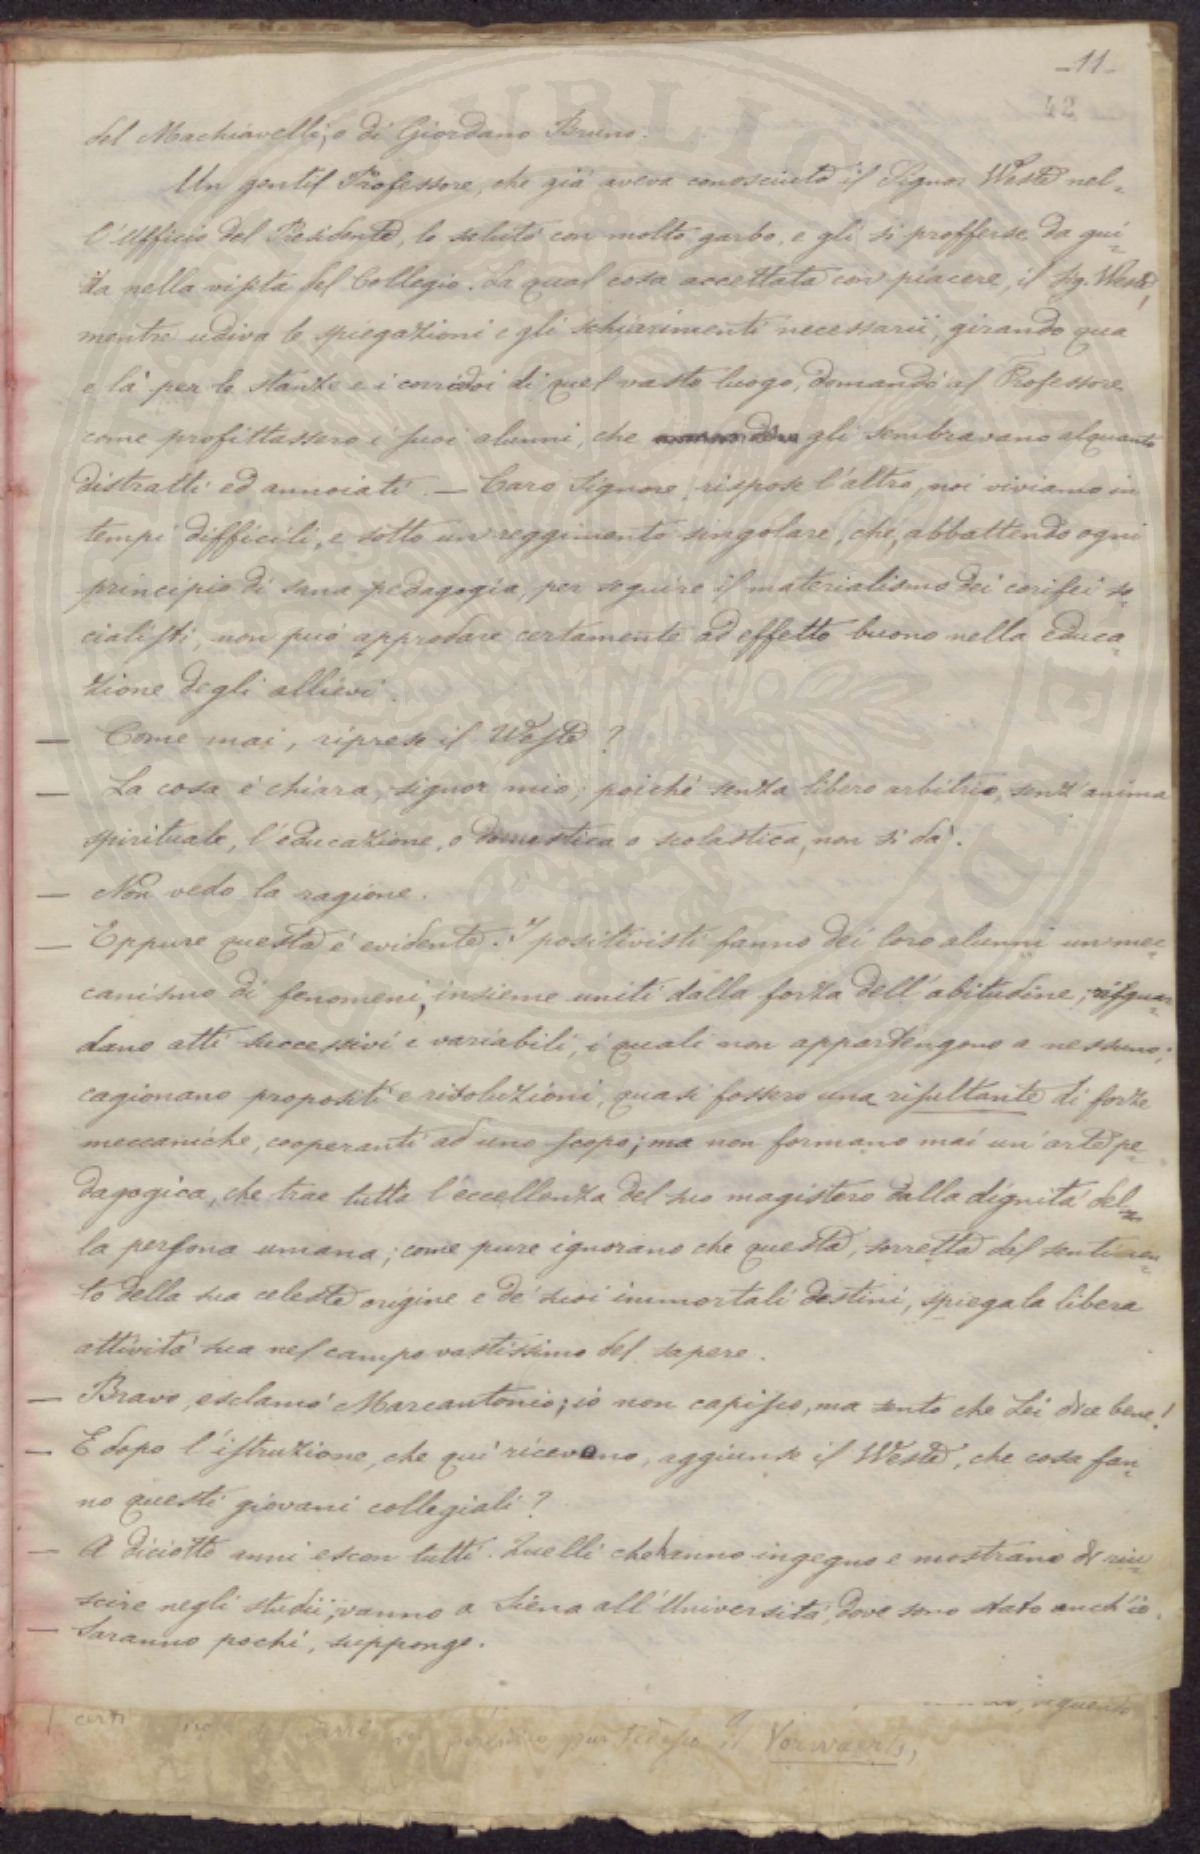 -11-
42
del Machiavelli, o di Giordano Bruno.
Un gentil Professore, che già aveva conosciuto il Signor Weste nel-
l'Ufficio del Presidente, lo salutò con molto garbo, e gli si profferse da gui-
da nella visita del Collegio. La qual cosa accettata con piacere, il Sig. Weste,
mentre udiva le spiegazioni e gli schiarimenti necessarii, girando qua
e là per le stanze e i corridoi di quel vasto luogo, domandò al Professore
come profittassero i suoi alunni, che gli sembravano alquanto
distratti ed annoiati. — Caro Signore, rispose l'altro, noi viviamo in
tempi difficili, e sotto un reggimento singolare, che, abbattendo ogni
principio di sana pedagogia, per seguire il materialismo dei corifei so-
cialisti, non può approdare certamente ad effetto buono nella educa-
zione degli allievi.
— Come mai, riprese il Weste?
— La cosa è chiara, signor mio; poiché senza libero arbitrio, senz'anima
spirituale, l'educazione, o domestica o scolastica, non si dà.
— Non vedo la ragione.
— Eppure questa è evidente. I positivisti fanno dei loro alunni un mec-
canismo di fenomeni, insieme uniti dalla forza dell'abitudine; risguar-
dano atti successivi e variabili, i quali non appartengono a nessuno;
cagionano propositi e risoluzioni, quasi fossero una risultante di forze
meccaniche, cooperanti ad uno scopo; ma non formano mai un'arte pe-
dagogica, che trae tutta l'eccellenza del suo magistero dalla dignità del-
la persona umana; come pure ignorano che questa, sorretta dal sentimen-
to della sua celeste origine e de' suoi immortali destini, spiega la libera
attività sua nel campo vastissimo del sapere.
— Bravo, esclamò Marcantonio; io non capisco, ma sento che Lei dice bene!
— E dopo l'istruzione, che qui ricevono, aggiunse il Weste, che cosa fan-
no questi giovani collegiali?
— A diciotto anni escon tutti. Quelli che hanno ingegno e mostrano di riu-
scire negli studii, vanno a Siena all'Università, dove sono stato anch'io.
— Saranno pochi, suppongo.
seguendo
certi
periodico pur tedesco il Vorwaerts,